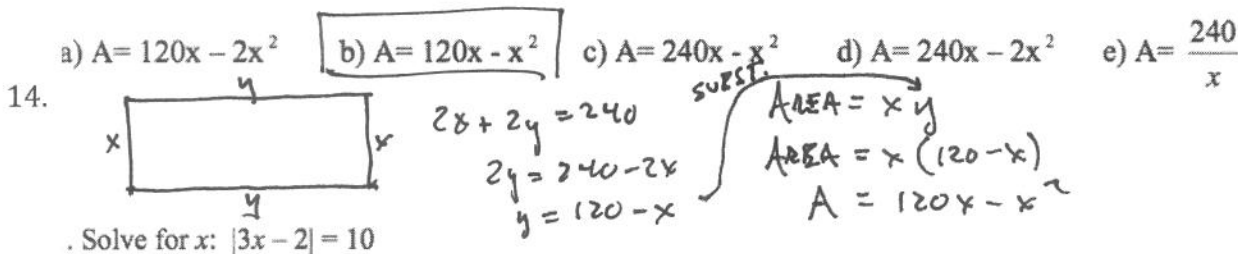 a) A= 120x – 2x² b) A= 120x - x² c) A= 240x - x² d) A= 240x – 2x² e) A= 240/x
14.
y
x x
y
2x + 2y = 240
2y = 240 - 2x
y = 120 - x
SUBST.
AREA = xy
AREA = x(120-x)
A = 120x - x²
. Solve for x: |3x – 2| = 10